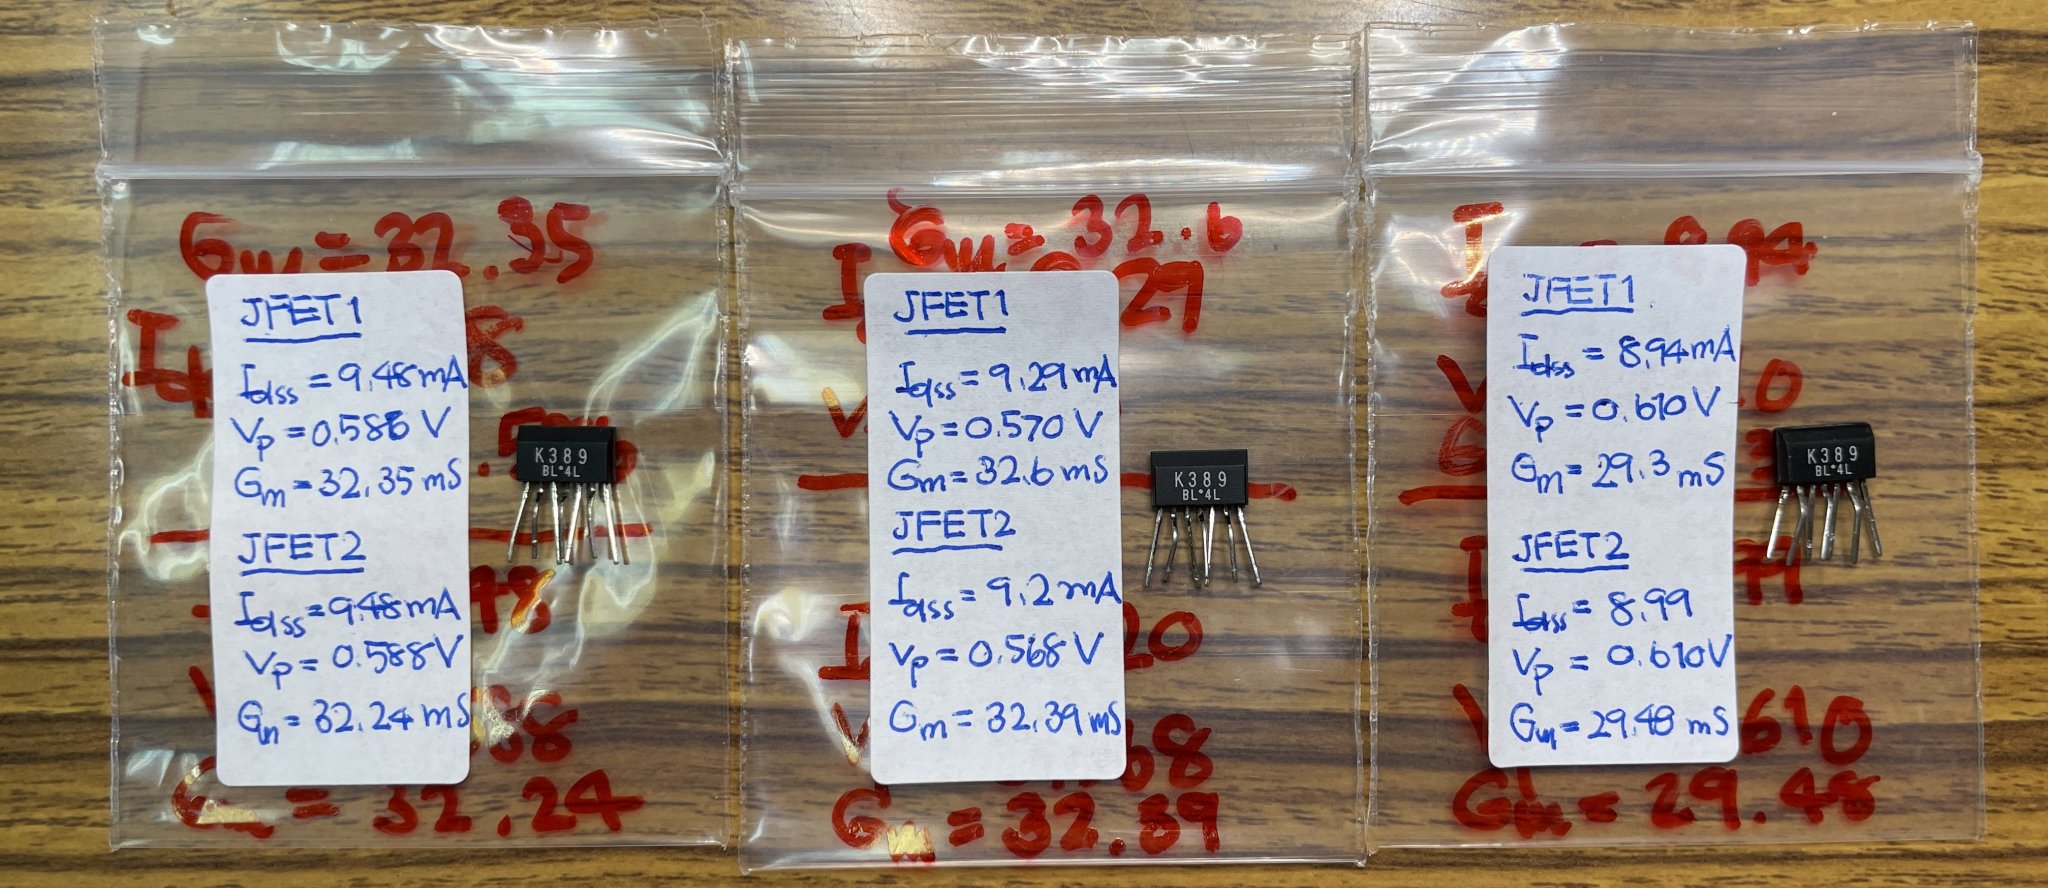 Gm = 32.35
JFET1
Idss = 9.48mA
Vp = 0.586 V
Gm = 32.35 mS
JFET2
Idss = 9.48mA
Vp = 0.588V
Gm = 32.24 mS
Gm = 32.24
K389
BL•4L
Gm = 32.6
JFET1
Idss = 9.29 mA
Vp = 0.570 V
Gm = 32.6 mS
JFET2
Idss = 9.2 mA
Vp = 0.568 V
Gm = 32.39 mS
Gm = 32.39
K389
BL•4L
JFET1
Idss = 8.94mA
Vp = 0.610 V
Gm = 29.3 mS
JFET2
Idss = 8.99
Vp = 0.610V
Gm = 29.48 mS
610
Gm = 29.48
K389
BL•4L